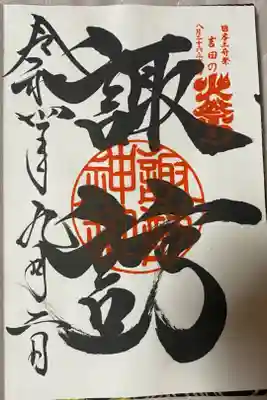 日本三奇祭
吉田の
火祭
八月二十六
諏訪
諏訪
神社
令和
年九月二日